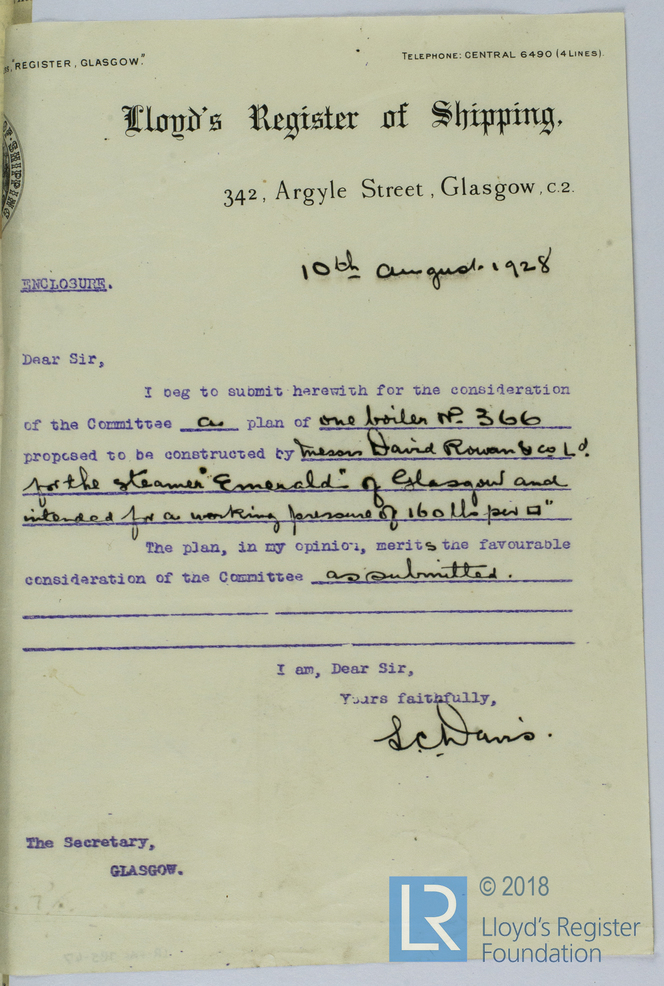 "REGISTER, GLASGOW."
TELEPHONE: CENTRAL 6490 (4 LINES).
Lloyd's Register of Shipping,
342, Argyle Street, Glasgow, C.2.
OF SHIPPING
10th August 1928
ENCLOSURE.
Dear Sir,
I beg to submit herewith for the consideration
of the Committee a plan of one boiler No. 366
proposed to be constructed by Messrs David Rowan & Co Ld.
for the steamer "Emerald" of Glasgow and
intended for a working pressure of 160 lbs per □"
The plan, in my opinion, merits the favourable
consideration of the Committee as submitted.
I am, Dear Sir,
Yours faithfully,
S.C. Davis.
The Secretary,
GLASGOW.
LR
© 2018
Lloyd's Register
Foundation